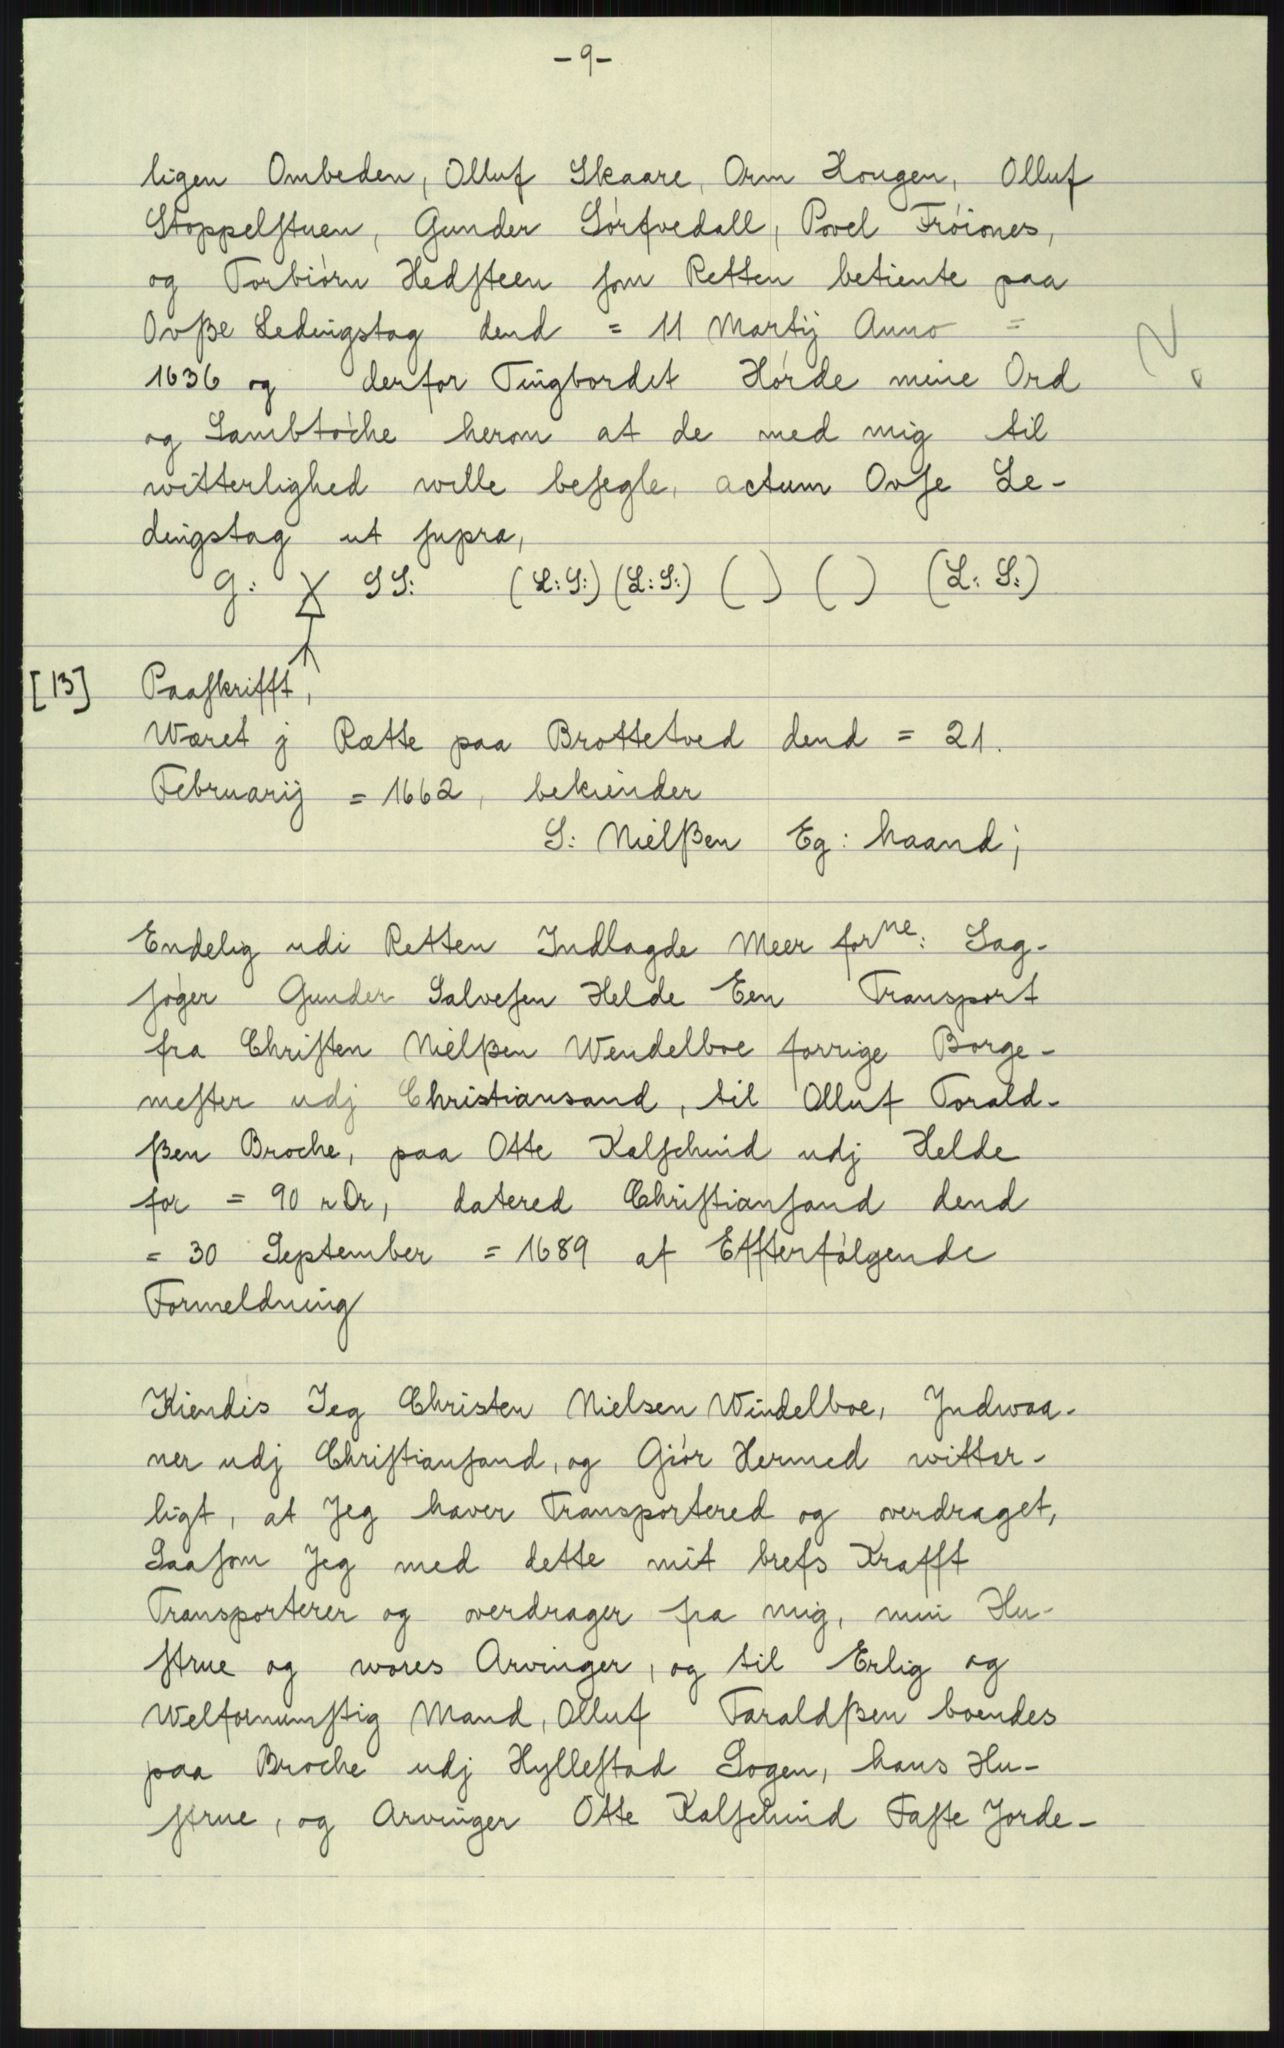 -9-
ligen Ombeden, Olluf Skaare, Orm Hougen, Olluf
Stoppelstuen, Gunder Sórfvedall, Povel Fróiones,
og Torbiórn Hedsteen som Retten betiente paa
Ovße Ledingstag dend = 11 Martij Anno =
1636 og derfor Tingbordet Hórde mine Ord
og Sambtóche herom at de med mig til
witterlighed wille besegle, actum Ovse Le-
dingstag ut supra,
G: X SS: (L:S:) (L:S:) ( ) ( ) (L: S:)
[13] Paaskrifft,
Wæret j Rætte paa Brottetved dend = 21.
Februarij = 1662, bekiender
S: Nielßen Eg: haand;
Endelig udi Retten Indlagde Meer forne: Sag-
sóger Gunder Salvesen Helde Een Transport
fra Christen Nielßen Wendelboe forrige Borge-
mester udj Christiansand, til Olluf Torald-
ßen Broche, paa Otte Kalschind udj Helde
for = 90 rDr, datered Christiansand dend
= 30 September = 1689 af Effterfólgende
Formeldning
Kiendis Jeg Christen Nielsen Windelboe, Indwaa-
ner udj Christiansand, og Giór Hermed witter-
ligt, at Jeg haver Transportered og overdraget,
Saasom Jeg med dette mit brefs Krafft
Transporterer og overdrager fra mig, min Hu-
strue og wores Arvinger, og til Erlig og
Welfornumstig Mand, Olluf Taraldßen boendes
paa Broche udj Hyllestad Sogen, hans Hu-
strue, og Arvinger Otte Kalschind Faste Jorde-